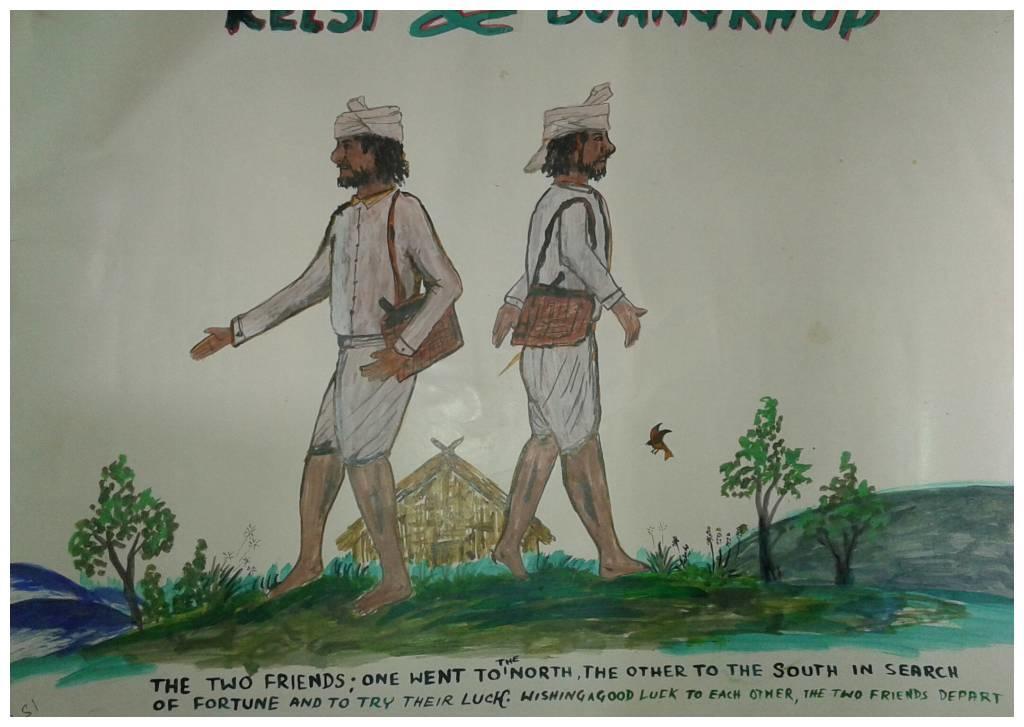 KELSI & BUANGKHUP
THE TWO FRIENDS; ONE WENT TO THE NORTH, THE OTHER TO THE SOUTH IN SEARCH
OF FORTUNE AND TO TRY THEIR LUCK. WISHING A GOOD LUCK TO EACH OTHER, THE TWO FRIENDS DEPART
51